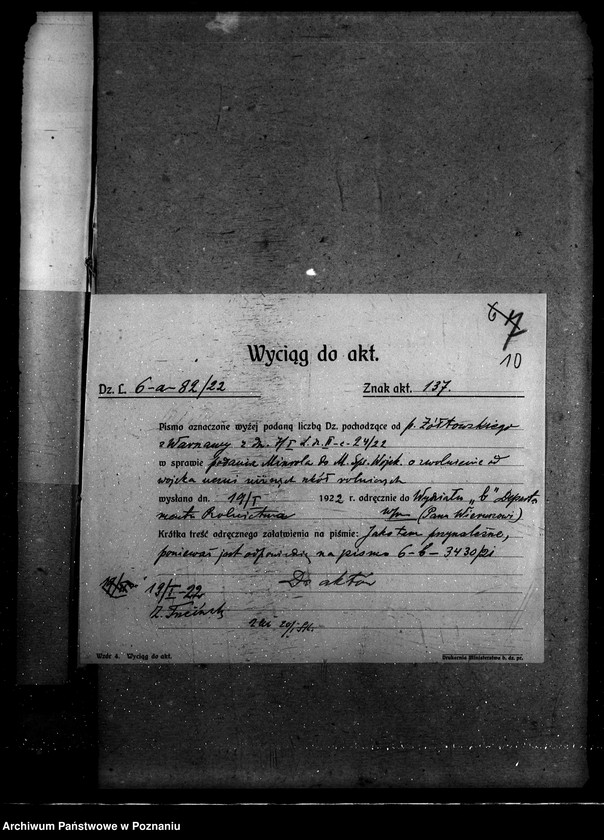 6 7
10
Wyciąg do akt.
Dz. L. 6-a-82/22 Znak akt. 137.
Pismo oznaczone wyżej podaną liczbą Dz. pochodzące od p. Żółtowskiego
z Warszawy z dn. 7/I L. dz. II-c-24/22
w sprawie podania Minrola do M. Spr. Wojsk. o zwolnienie z
wojska uczni niższych szkół rolniczych
wysłano dn. 19/I 1922 r. odręcznie do Wydziału „b" Departa-
mentu Rolnictwa (Pana Wierusza)
Krótka treść odręcznego załatwienia na piśmie: Jako tam przynależne,
ponieważ jest odpowiedzią na pismo 6-b-3430/21
19/I-22 Do aktów
20/I
Wzór 4. Wyciąg do akt. Drukarnia Ministerstwa b. dz. pr.
Archiwum Państwowe w Poznaniu